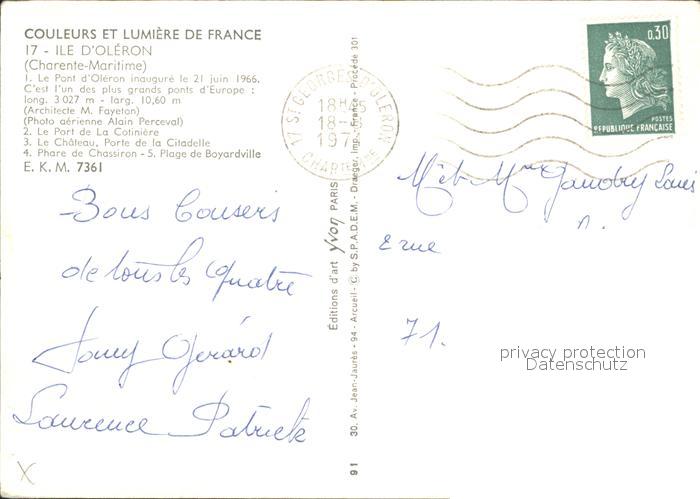 COULEURS ET LUMIÈRE DE FRANCE
17 - ILE D'OLÉRON
(Charente-Maritime)
1. Le Pont d'Oléron inauguré le 21 juin 1966.
C'est l'un des plus grands ponts d'Europe :
long. 3 027 m - larg. 10,60 m
(Architecte M. Fayeton)
(Photo aérienne Alain Perceval)
2. Le Port de La Cotinière
3. Le Château, Porte de la Citadelle
4. Phare de Chassiron - 5. Plage de Boyardville
E. K. M. 7361
Bons Baisers
de tous les quatre
Gérard
Laurence Patrick
X
Éditions d'art Yvon PARIS
91 30, Av. Jean-Jaurès - 94 - Arcueil - C. by S.P.A.D.E.M. - Draeger, Imp. - France - Procédé 301
17 ST GEORGES D'OLERON
18H
18-
19
0,30
POSTES
REPUBLIQUE FRANÇAISE
M et Mme Gaudry Louis
rue
71.
privacy protection
Datenschutz